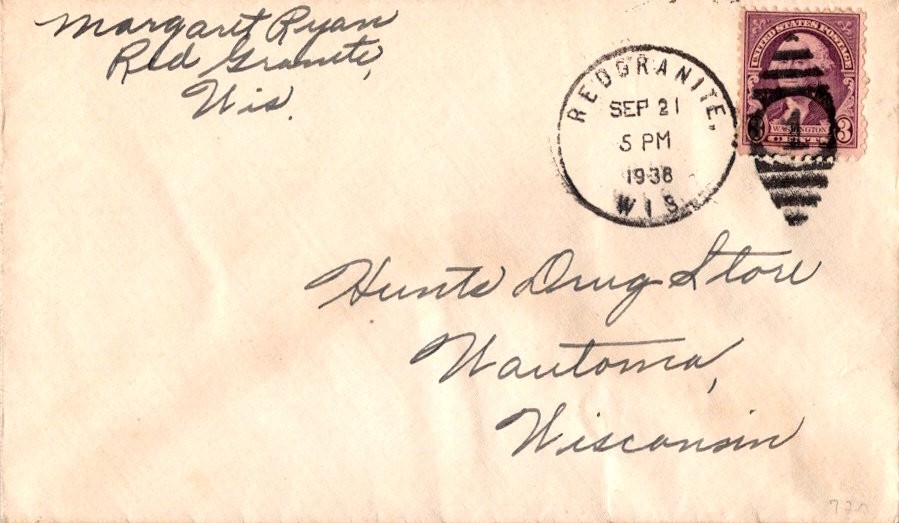 Margaret Ryan
Red Granite,
Wis.
REDGRANITE,
SEP 21
5 PM
1938
WIS.
UNITED STATES POSTAGE
3 WASHINGTON 3
1
Hunts Drug Store
Wautoma,
Wisconsin